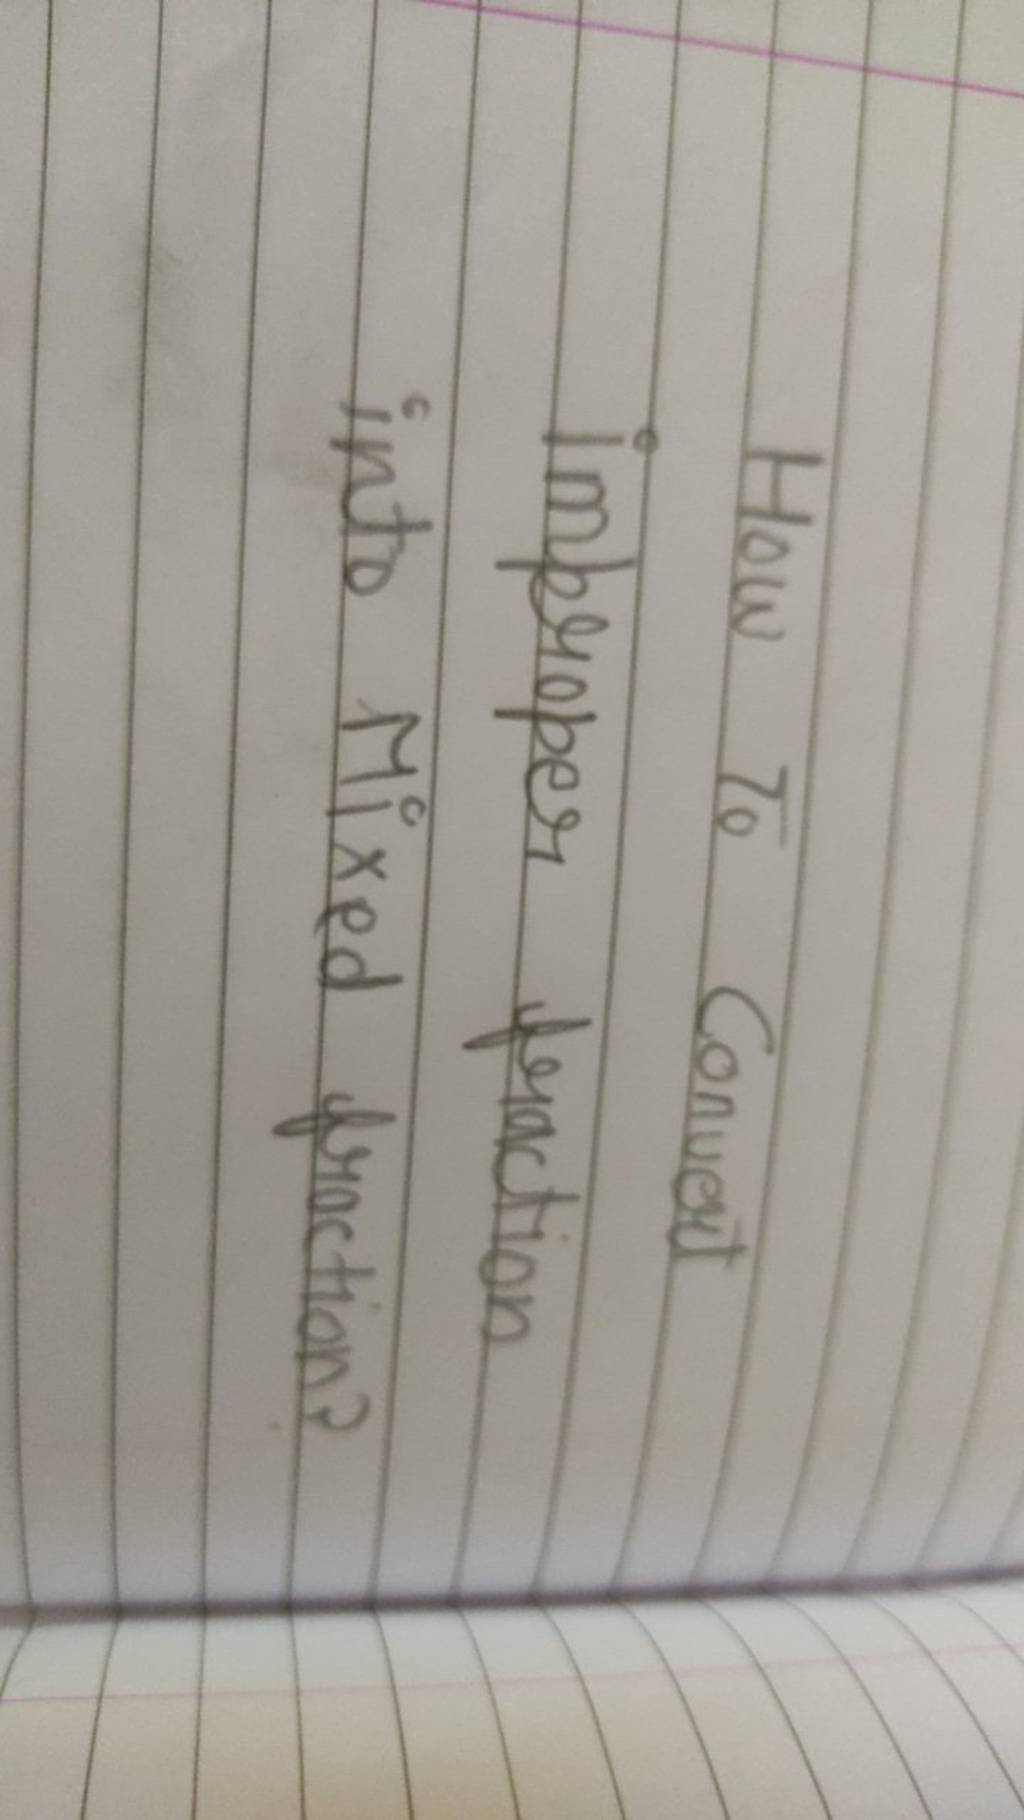 How To Convert
improper fraction
into Mixed fraction?